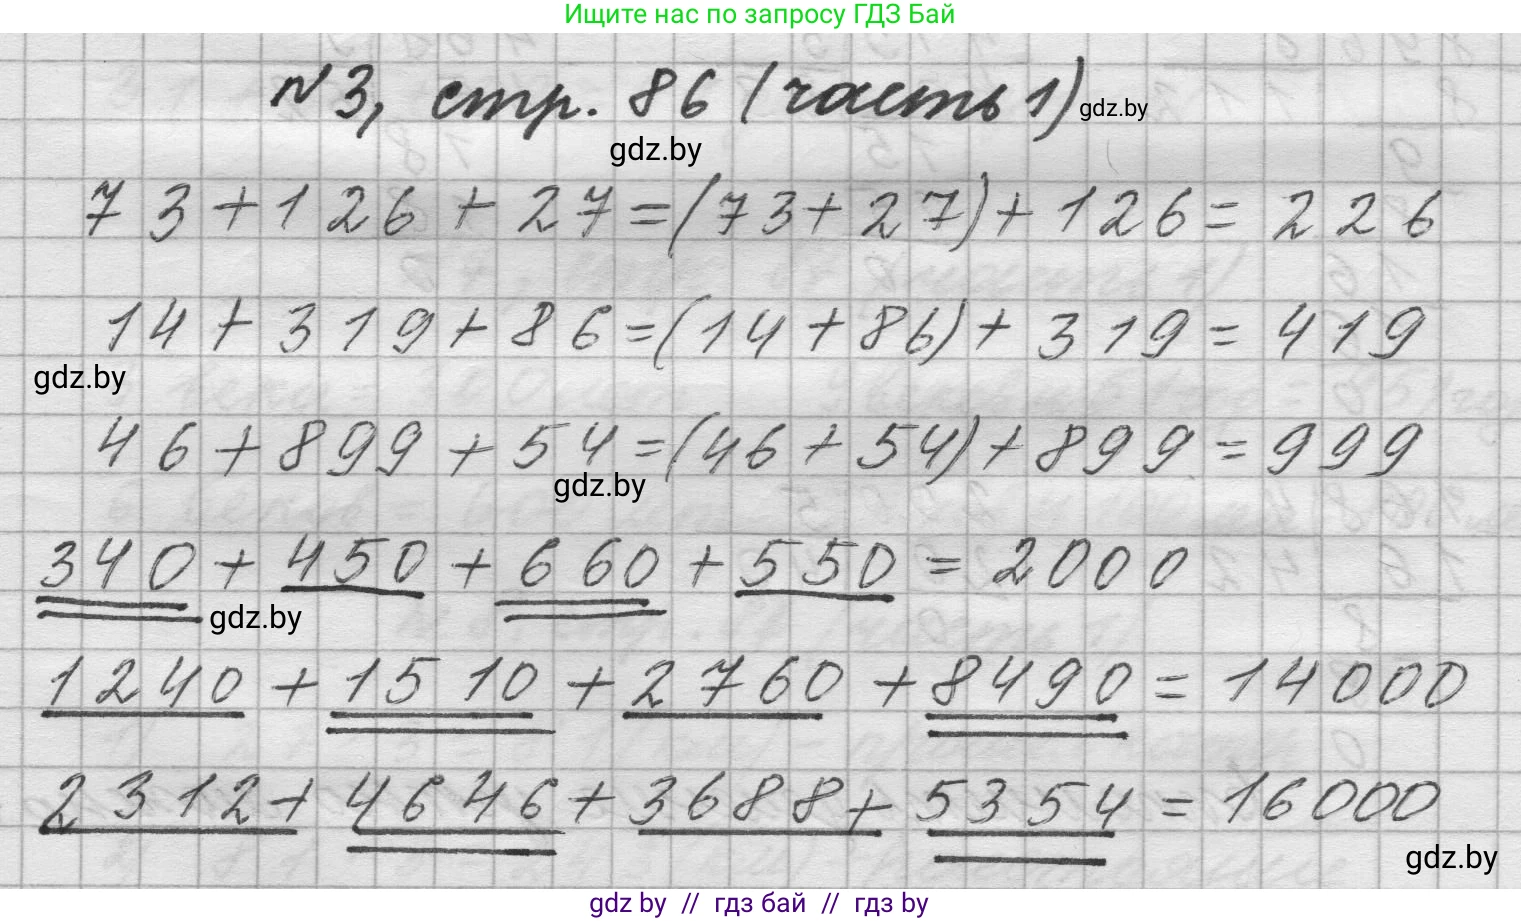 Ищите нас по запросу ГДЗ Бай
№3, стр. 86 (часть 1) gdz.by
gdz.by
73+126+27=(73+27)+126=226
14+319+86=(14+86)+319=419
gdz.by
46+899+54=(46+54)+899=999
gdz.by
340+450+660+550=2000
gdz.by
1240+1510+2760+8490=14000
2312+4646+3688+5354=16000
gdz.by
gdz by // гдз бай // гдз by